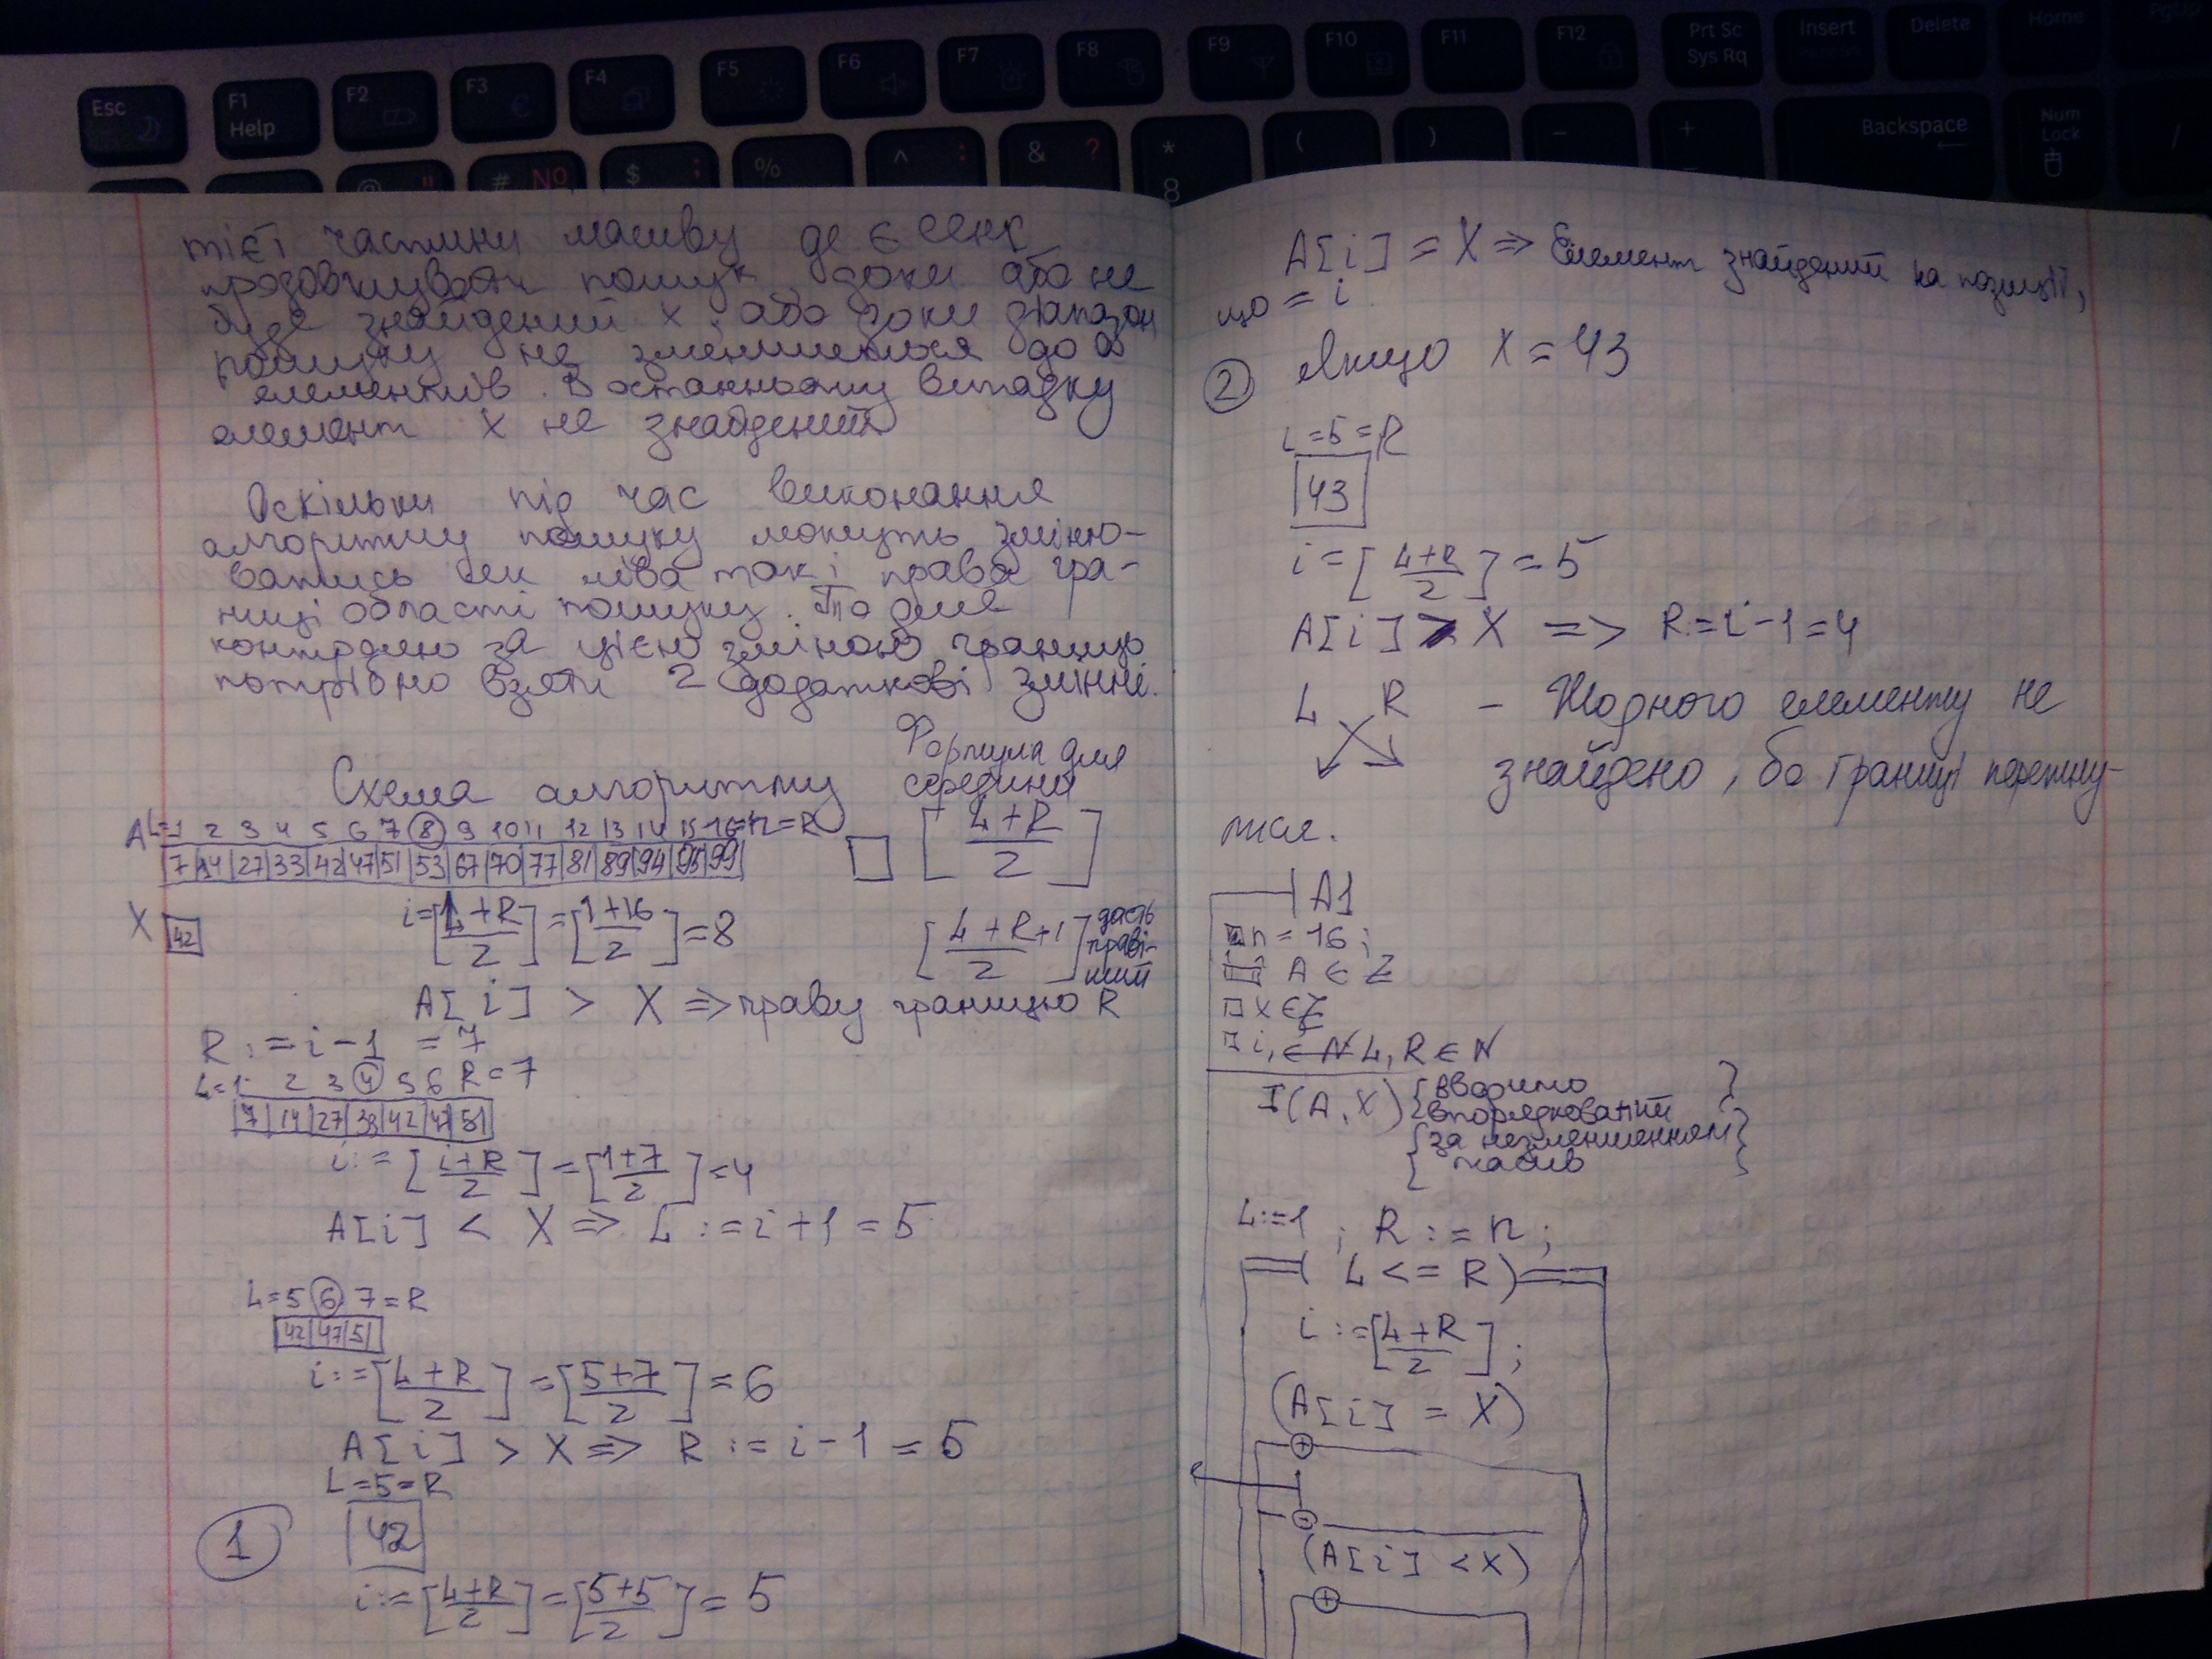 Esc
F1
Help
F2
F3
F4
F5
F6
F7
F8
F9
F10
F11
F12
Prt Sc
Sys Rq
Insert
Delete
Home
PgUp
@ "
# №
$ ;
%
^ :
& ?
* 8
(
)
-
+
Backspace
Num
Lock
/
тієї частини масиву де є сенс
продовжувати пошук, доки або не
буде знайдений x, або доки діапазон
пошуку не зменшиться до 0
елементів. В останньому випадку
елемент x не знайдений
Оскільки під час виконання
алгоритму пошуку можуть зміню-
ватись як ліва так і права гра-
ниці області пошуку. То для
контролю за цією зміною границь
потрібно взяти 2 додаткові змінні.
Схема алгоритму
Формула для
середини
A L=1 2 3 4 5 6 7 8 9 10 11 12 13 14 15 16=n=R
7 14 27 33 42 47 51 53 67 70 77 81 89 94 95 99
[L+R/2]
X 42
i=[L+R/2]=[1+16/2]=8
[L+R+1/2] дасть
праві-
ший
A[i] > X => праву границю R
R:=i-1=7
L=1 2 3 4 5 6 R=7
7 14 27 33 42 47 51
i:=[L+R/2]=[1+7/2]=4
A[i] < X => L:=i+1=5
L=5 6 7=R
42 47 51
i:=[L+R/2]=[5+7/2]=6
A[i] > X => R:=i-1=5
L=5=R
1
42
i:=[L+R/2]=[5+5/2]=5
A[i] = X => Елемент знайдений на позиції,
що = i
2 якщо X=43
L=5=R
43
i=[L+R/2]=5
A[i] > X => R:=i-1=4
L R - Жодного елементу не
знайдено, бо границі перетну-
лися.
A1
n=16;
A ∈ Z
X ∈ Z
i, L, R ∈ N
I(A,X) {вводимо}
{впорядкований}
{за незменшенням}
{масив}
L:=1; R:=n;
L<=R)
i:=[L+R/2];
(A[i] = X)
+
-
(A[i] < X)
+